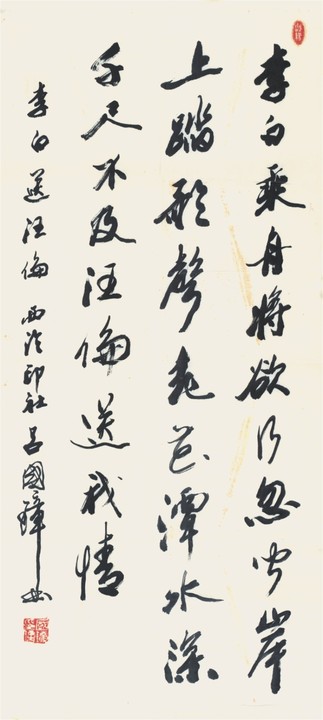 李白乘舟將欲行忽聞岸
上踏歌聲桃花潭水深
千尺不及汪倫送我情
李白送汪倫 西泠印社 呂國璋書